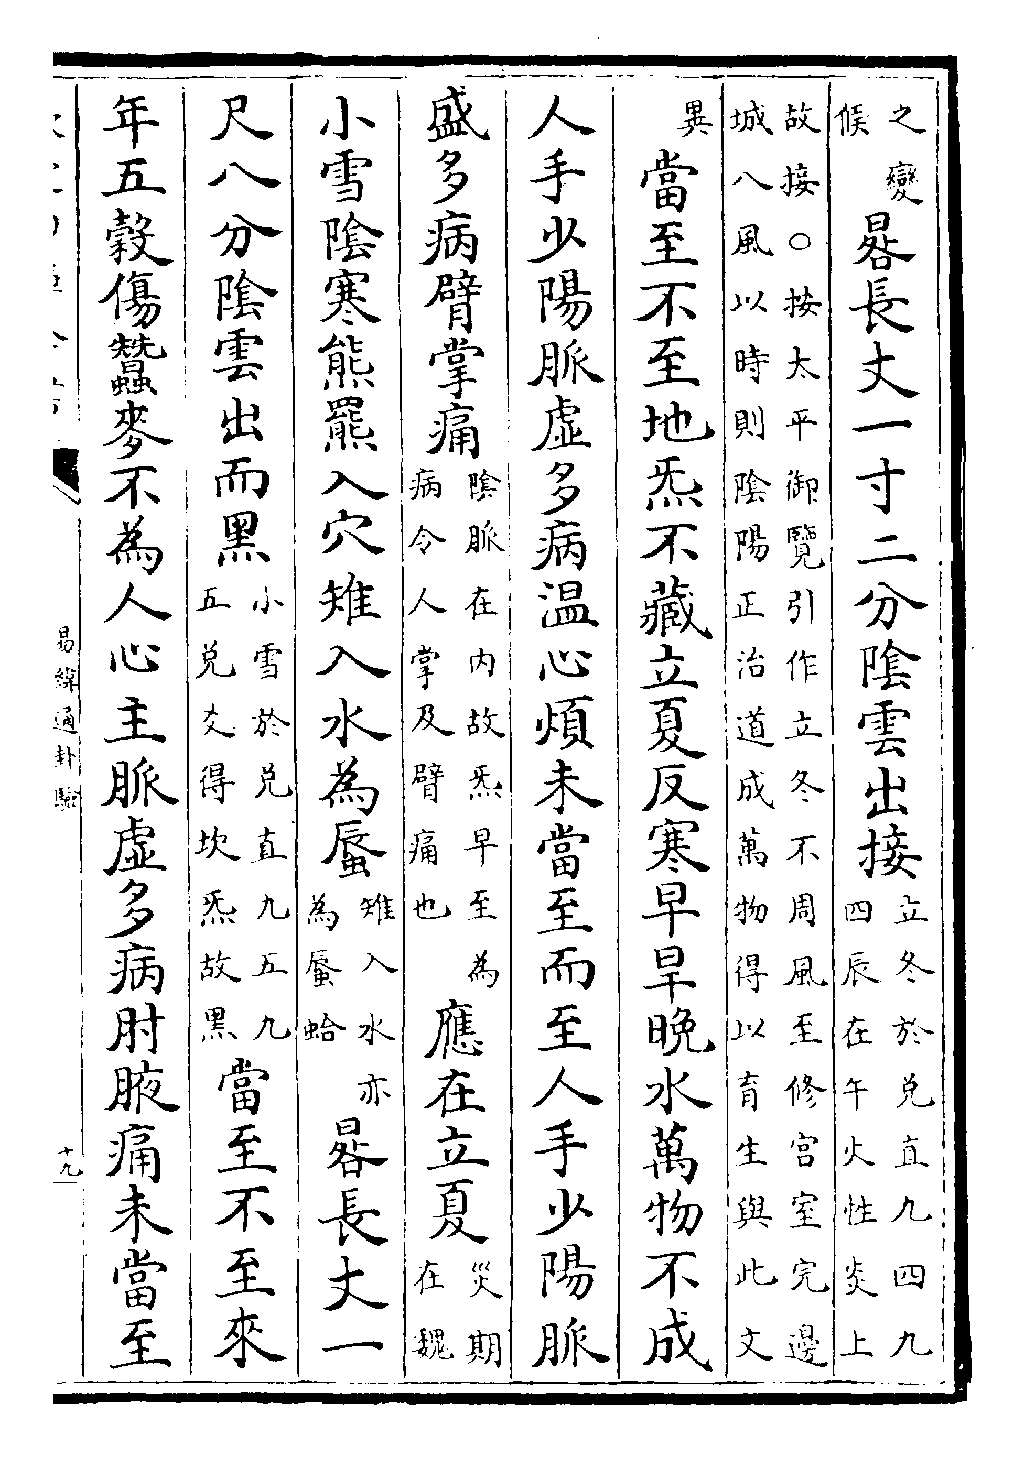 之變候晷長丈一寸二分陰雲出接立冬於兌直九四九四辰在午火性炎上
故接○按太平御覽引作立冬不周風至修宮室完邊
城八風以時則陰陽正治道成萬物得以育生與此文
異當至不至地炁不藏立夏反寒早旱晚水萬物不成
人手少陽脈虛多病温心煩未當至而至人手少陽脈
盛多病臂掌痛陰脈在内故炁早至為病令人掌及臂痛也應在立夏災期在魏
小雪陰寒熊羆入穴雉入水為蜃雉入水亦為蜃蛤晷長丈一
尺八分陰雲出而黑小雪於兌直九五九五兌爻得坎炁故黑當至不至來
年五穀傷蠶麥不為人心主脈虛多病肘腋痛未當至
易緯通卦驗
十九